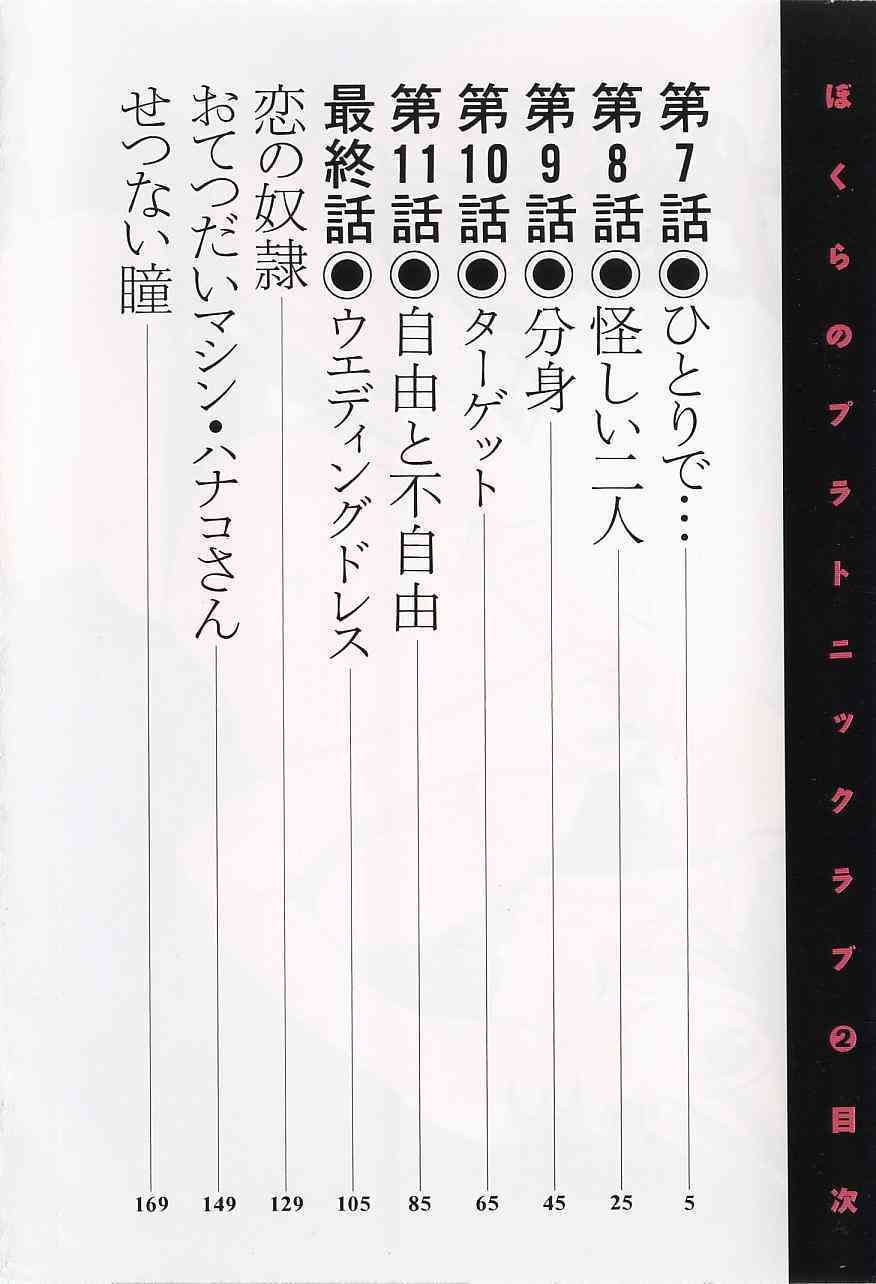 ぼくらのプラトニックラブ❷目次
第7話◉ひとりで… 5
第8話◉怪しい二人 25
第9話◉分身 45
第10話◉ターゲット 65
第11話◉自由と不自由 85
最終話◉ウエディングドレス 105
恋の奴隷 129
おてつだいマシン・ハナコさん 149
せつない瞳 169